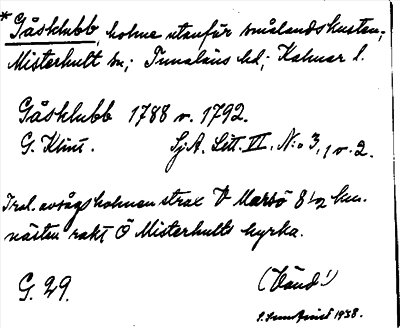 * Gåsklubb, holme utanför smålandskusten;
Misterhult sn; Tunaläns hd; Kalmar l.
Gåsklubb 1788 o. 1792.
G. Klint. SjA. Litt. VI, N:o 3, 1 o. 2.
avlång holmen strax V Marsö 8 1/2 km.
nästan rakt Ö Misterhults kyrka.
G. 29. (Vänd!)
1938.